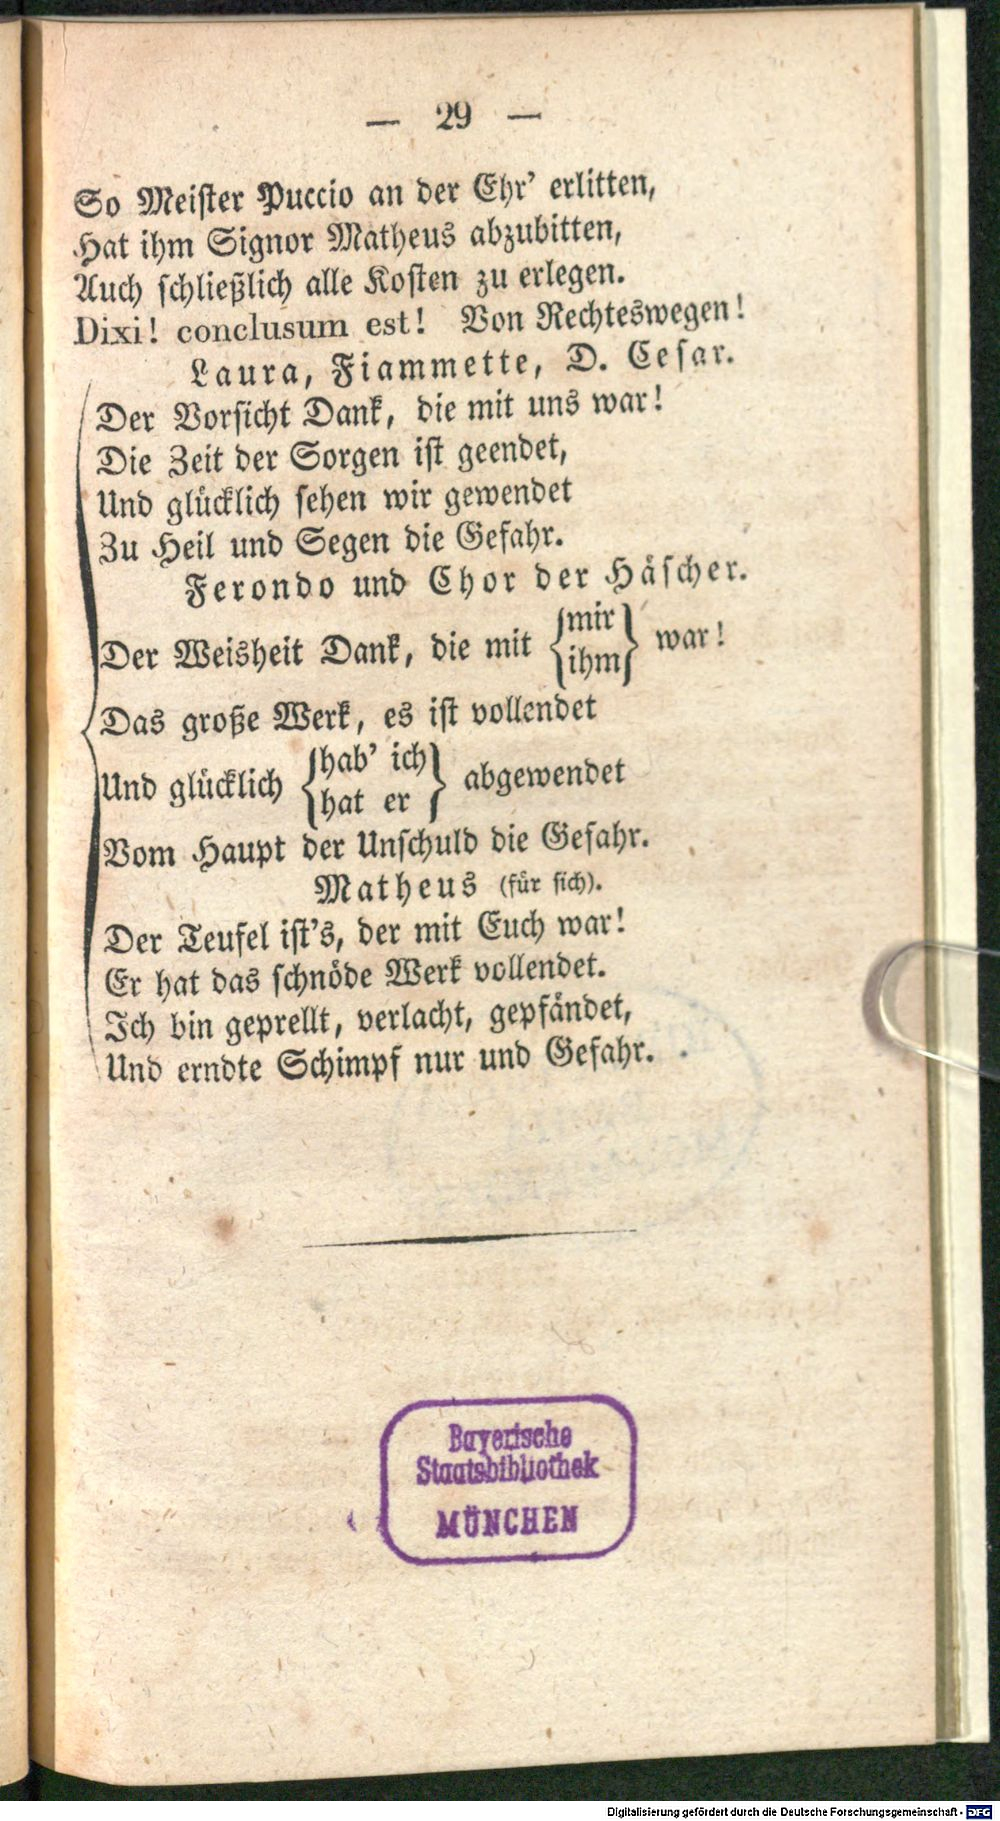 — 29 —
So Meister Puccio an der Ehr' erlitten,
Hat ihm Signor Matheus abzubitten,
Auch schließlich alle Kosten zu erlegen.
Dixi! conclusum est! Von Rechteswegen!
Laura, Fiammette, D. Cesar.
Der Vorsicht Dank, die mit uns war!
Die Zeit der Sorgen ist geendet,
Und glücklich sehen wir gewendet
Zu Heil und Segen die Gefahr.
Ferondo und Chor der Häscher.
Der Weisheit Dank, die mit {mir
ihm} war!
Das große Werk, es ist vollendet
Und glücklich {hab' ich
hat er} abgewendet
Vom Haupt der Unschuld die Gefahr.
Matheus (für sich).
Der Teufel ist's, der mit Euch war!
Er hat das schnöde Werk vollendet.
Ich bin geprellt, verlacht, gepfändet,
Und erndte Schimpf nur und Gefahr.
Bayerische
Staatsbibliothek
MÜNCHEN
Digitalisierung gefördert durch die Deutsche Forschungsgemeinschaft - DFG